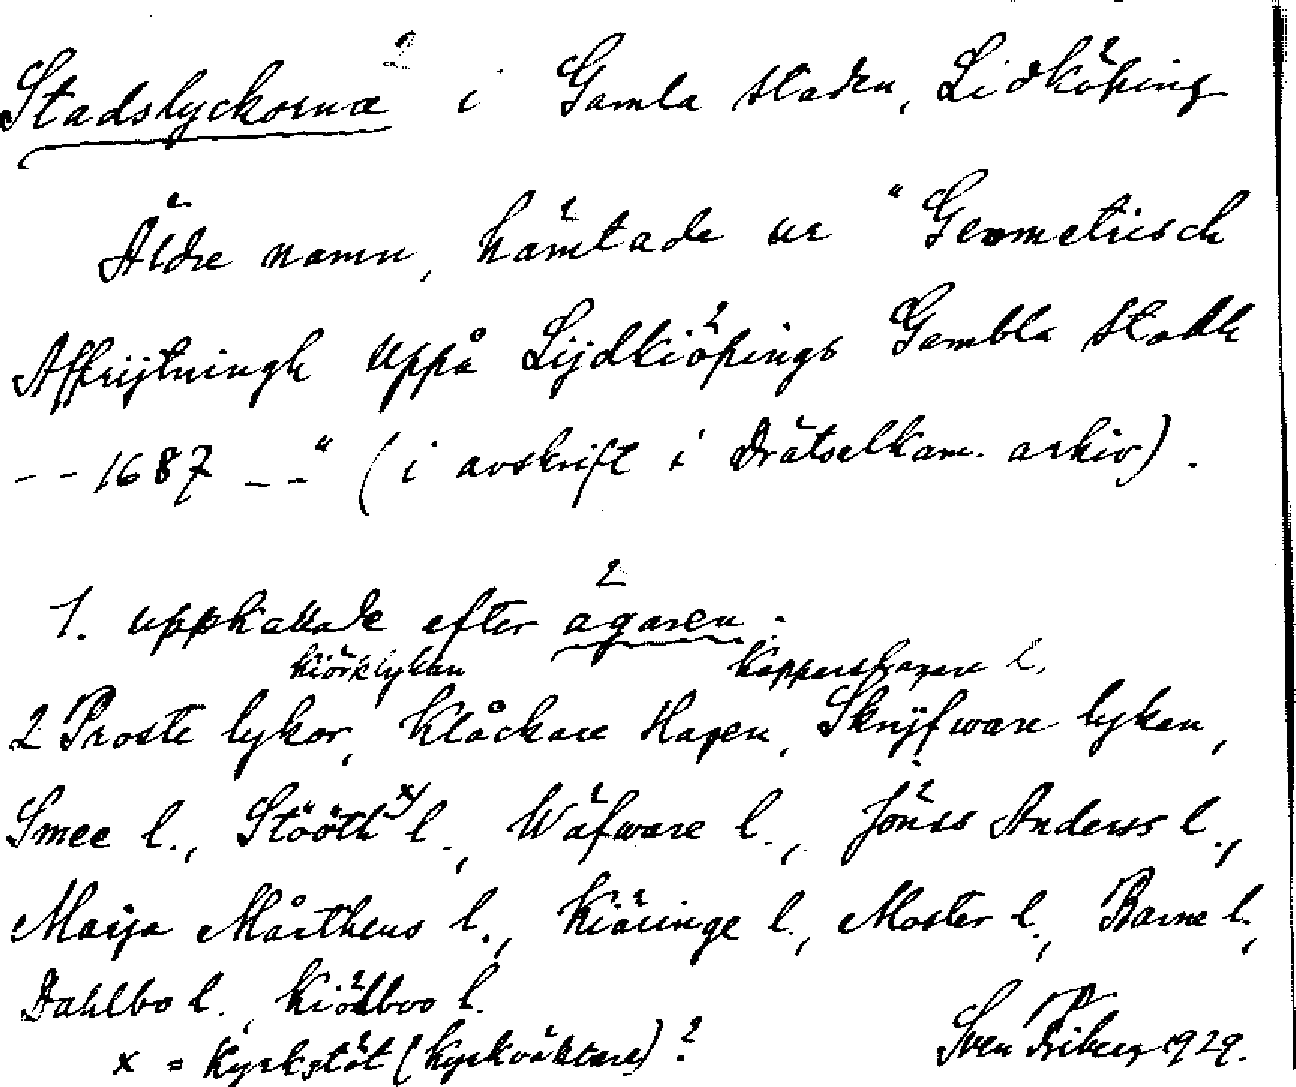 Stadslyckorna i Gamla staden, Lidköping
Äldre namn, hämtade ur "Geometrisch
Affrijtningh uppå Lijdkiöpings Gambla Stadh
-- 1687 --" (i avskrift i Drätselkam. arkiv).
1. uppkallade efter ägaren.
Kiörklykan Kopparslagare l.
2 Proste lykor, Klåckare Hagen, Skrijfware lyken,
Smee l., Stööth x) l., Wäfware l., Jönss Anderss l.,
Marja Mårthens l., Kiäringe l., Moster l., Barne l.,
Dahlbo l., Kiöhlboo l.
x = Kyrkstöt (Kyrkväktare)? Sven Friberg 1929.